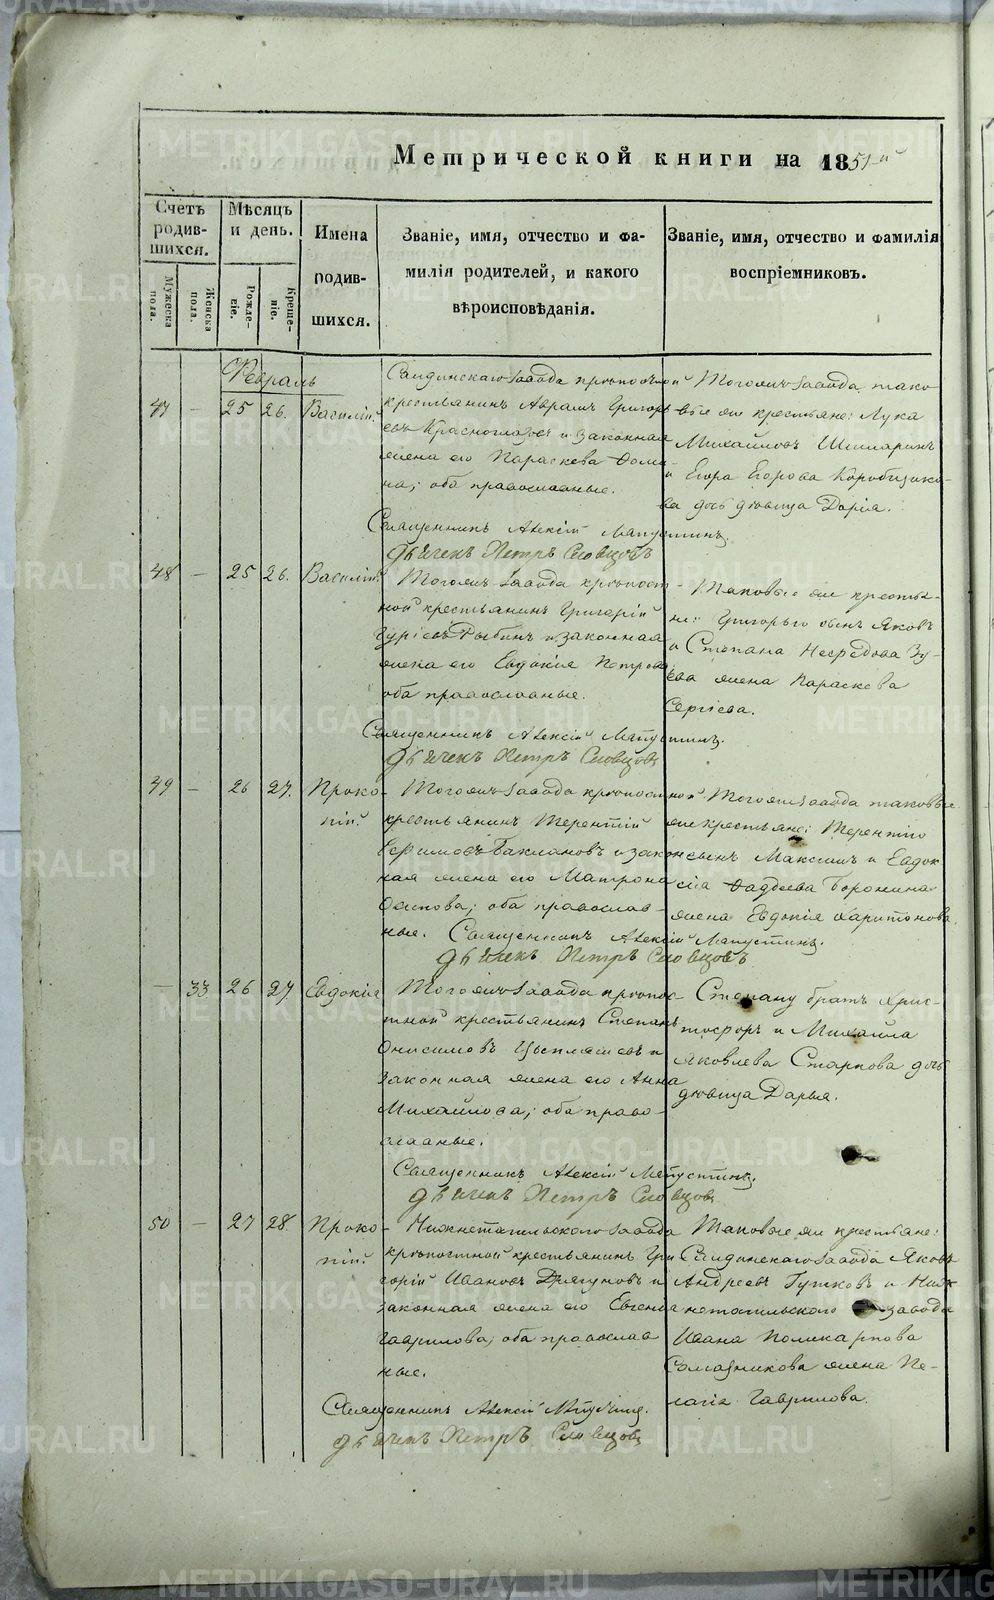 Метрической книги на 1851-й
Счетъ родившихся.
Мужеска пола.
Женска пола.
Мѣсяцъ и день.
Рожденіе.
Крещеніе.
Имена родившихся.
Званіе, имя, отчество и фамилія родителей, и какого вѣроисповѣданія.
Званіе, имя, отчество и фамилія воспріемниковъ.
Февраль
47 — 25 26. Василій.
Салдинскаго завода крѣпостной
крестьянинъ Аврамъ Григорьевъ
Красноглазовъ и законная
жена его Параскева Ѳомина;
оба православные.
Тогожъ завода таковые
же крестьяне: Лука
Михайловъ
и Егора Егорова
дочь дѣвица Дарія.
Священникъ Алексій Мапустинъ.
Дьячекъ Петръ Словцовъ
48 — 25 26. Василій.
Тогожъ завода крѣпостной
крестьянинъ Григорій
Гуріевъ Рыбинъ и законная
жена его Евдокія Петрова
оба православные.
Таковые же крестьяне:
Григорьго сынъ Яковъ
и Степана Зуева
жена Параскева
Сергіева.
Священникъ Алексій Мапустинъ.
Дьячекъ Петръ Словцовъ
49 — 26 27. Прокопій.
Тогожъ завода крѣпостной
крестьянинъ Терентій
Ефимовъ Баклановъ и законная
жена его Матрона
Осипова; оба православные.
Тогожъ завода таковые
же крестьяне: Терентіго
сынъ Максимъ и
Ѳаддеева Боронина
жена Евдокія Харитонова.
Священникъ Алексій Мапустинъ.
Дьячекъ Петръ Словцовъ
— 33 26 27. Евдокія
Тогожъ завода крѣпостной
крестьянинъ Степанъ
Онисимовъ Цыпляшевъ и
законная жена его Анна
Михайлова; оба православные.
Степану братъ Христофоръ
и Михаила
Яковлева Старкова дочь
дѣвица Дарья.
Священникъ Алексій Мапустинъ.
Дьячекъ Петръ Словцовъ
50 — 27 28 Прокопій.
Нижнетагильскаго завода
крѣпостной крестьянинъ Григорій
Ивановъ Драгуновъ и
законная жена его Евгенія
Гаврилова; оба православные.
Таковые же крестьяне:
Салдинскаго завода Яковъ
Андреевъ Гутковъ и Нижнетагильского
завода
Ивана Поликарпова
жена Пелагія
Гаврилова.
Священникъ Алексій Мапустинъ.
Дьячекъ Петръ Словцовъ
METRIKI.GASO-URAL.RU